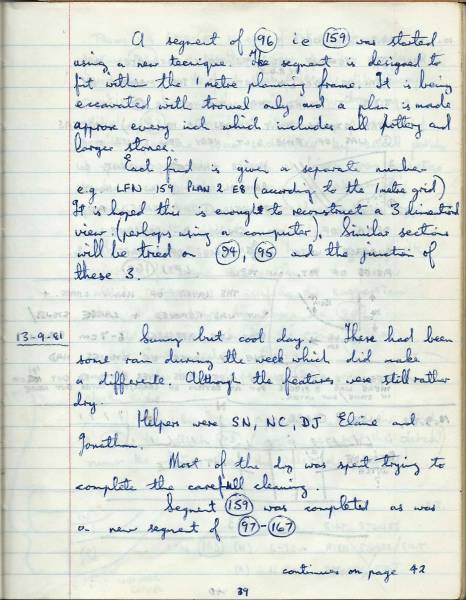 A segment of (96) i.e (159) was started
using a new tecnique. The segment is designed to
fit within the 1 metre planning frame. It is being
excavated with trowel only and a plan is made
approx every inch which includes all pottery and
larger stones.
Each find is given a separate number
e.g LFN 159 PLAN 2 E8 (according to the 1 metre grid)
It is hoped this is enough to reconstruct a 3 dimentional
view (perhaps using a computer). Similar sections
will be tried on (94), (95) and the junction of
these 3.
13-9-81 Sunny but cool day. There had been
some rain during the week which did make
a difference. Although the features were still rather
dry.
Helpers were SN, NC, DJ Elaine and
Jonathan.
Most of the day was spent trying to
complete the carefull cleaning.
Segment (159) was completed as was
a new segment of (97)-(167)
continues on page 42
39